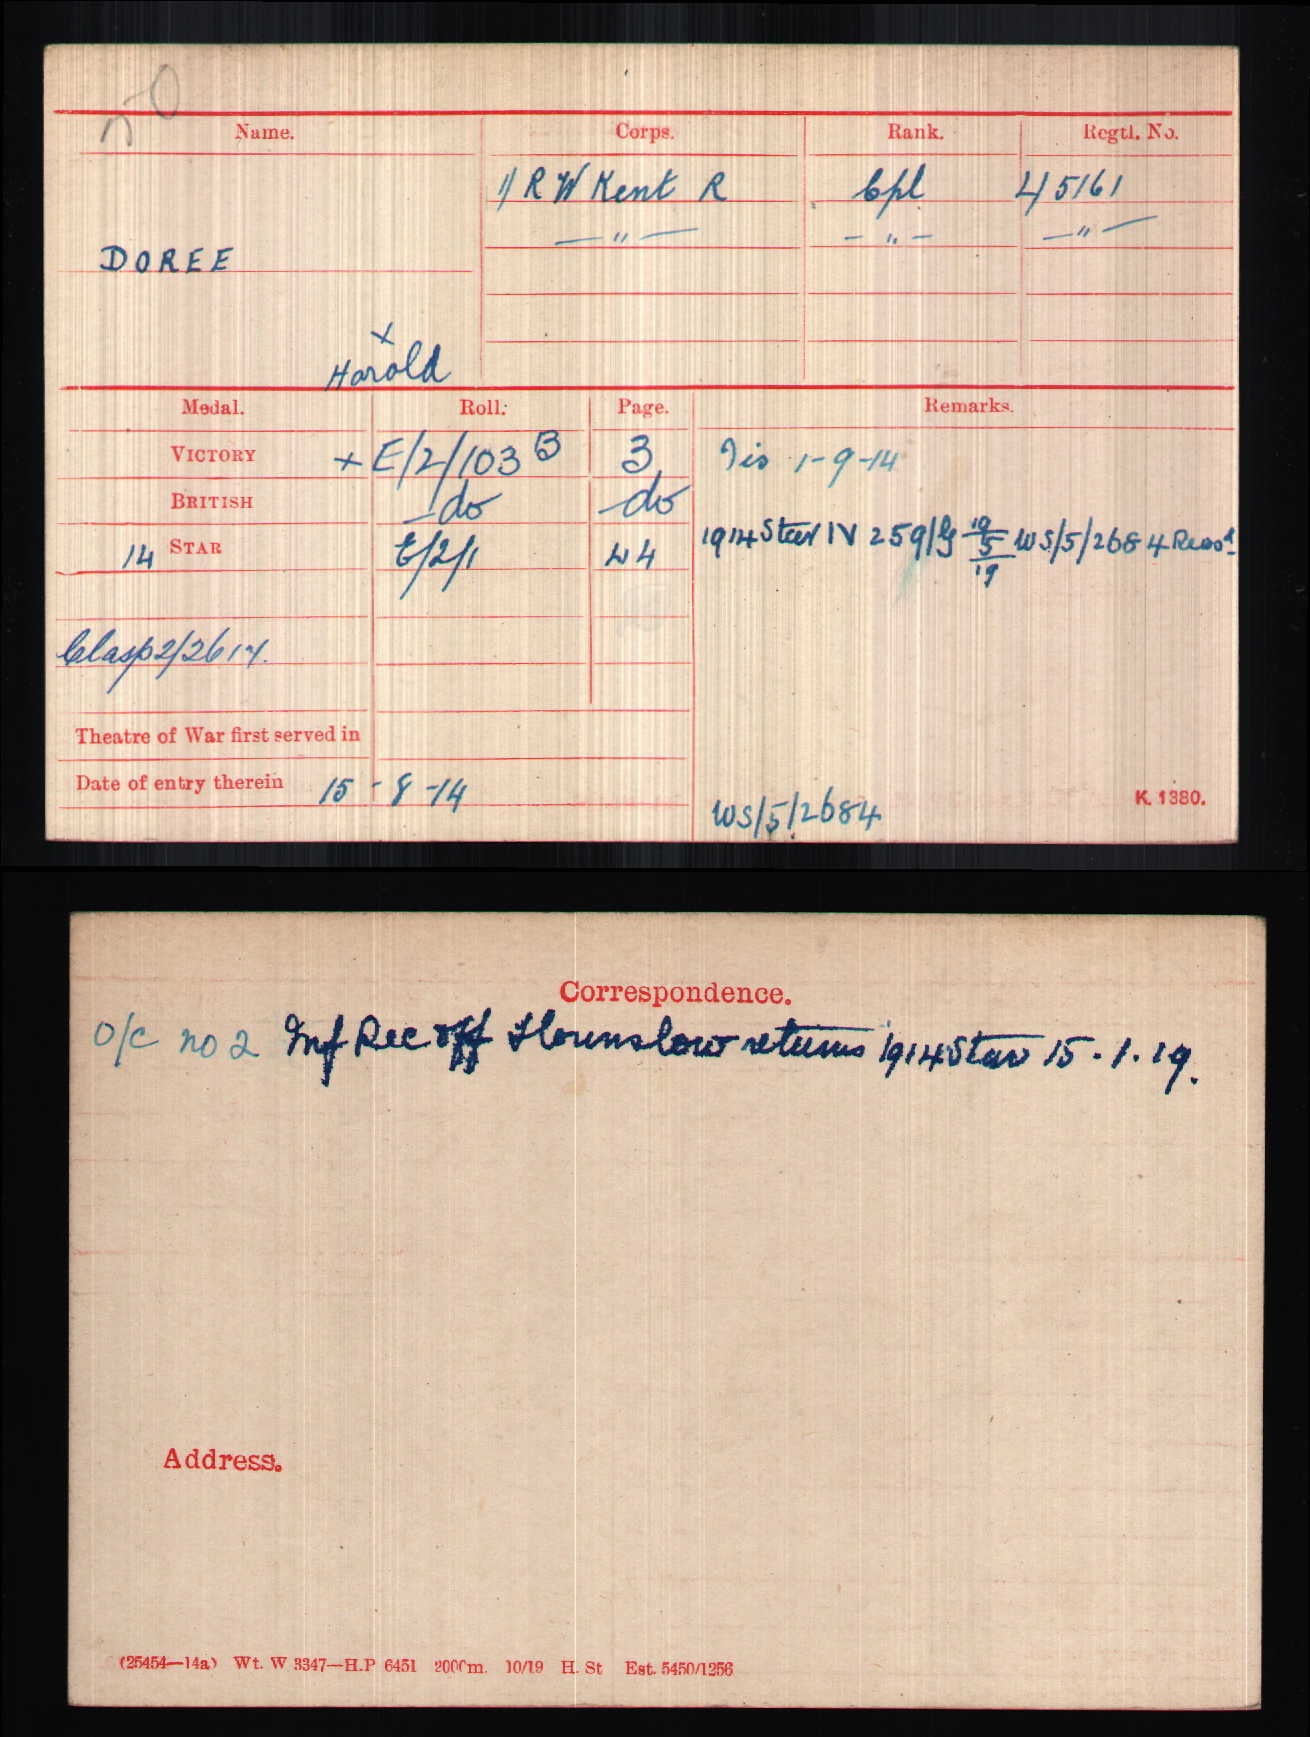 Name. Corps. Rank. Regtl. No.
1/ R W Kent R Cpl L/5161
— " — — " — — " —
DOREE
x
Harold
Medal. Roll. Page. Remarks.
VICTORY + E/2/103 B 3 Dis 1-9-14
BRITISH do do
14 STAR E/2/1 44 1914 Star IV 259/G 19/5/19 WS/5/2684 Reisd
Clasp 2/2614.
Theatre of War first served in
Date of entry therein 15-8-14
WS/5/2684 K. 1380.
Correspondence.
O/C no 2 Inf Rec off Hounslow returns 1914 Star 15.1.19.
Address.
(25454—14a) Wt. W 3347—H.P 6451 2000m. 10/19 H. St Est. 5450/1256